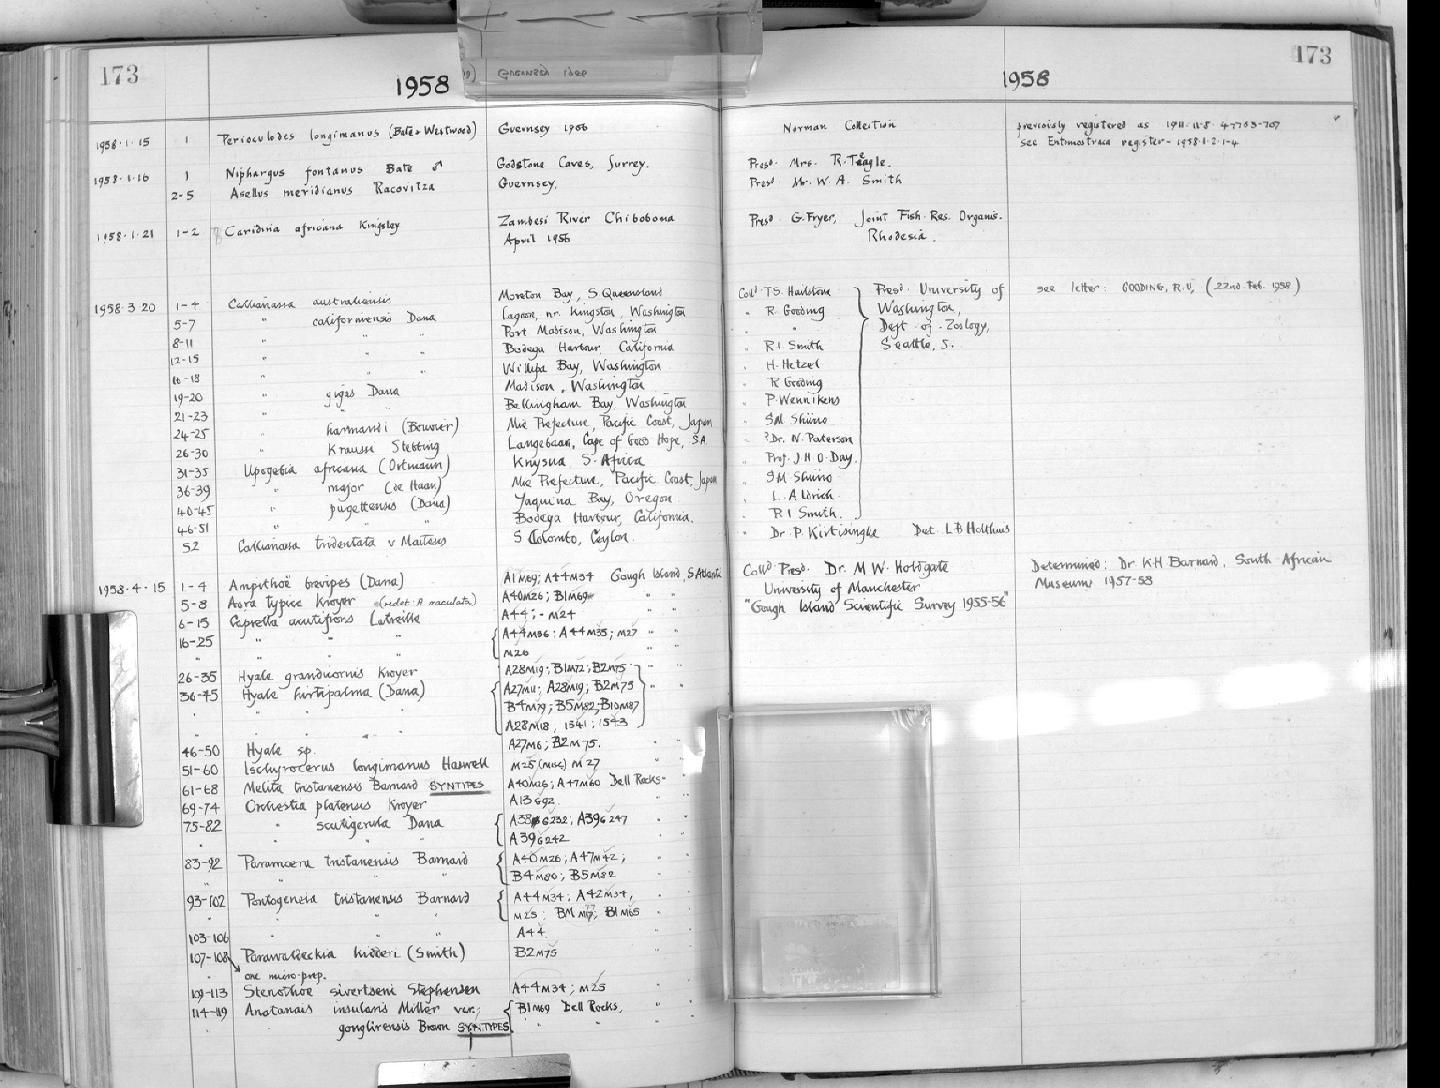 173
1958
1958
173
1958·1·15 1 Perioculodes longimanus (Bate & Westwood) Guernsey 1906 Norman Collection previously registered as 1911·11·8·
see Entomostraca register - 1958·1·2·1-4
1958·1·16 1 Niphargus fontanus Bate ♂ Godstone Caves, Surrey. Presd. Mrs. R. Teagle.
2-5 Asellus meridianus Racovitza Guernsey. Presd. Mr. W. A. Smith
1958·1·21 1-2 Caridina africana Kingsley Zambesi River Chibobona Presd. G. Fryer, Joint Fish. Res. Organis.
April 1956 Rhodesia.
1958·3·20 1-4 Callianassa australiensis Moreton Bay, S Queensland Colld T.S. Hailstone Presd. University of see letter: GOODING, R.U, (22nd. Feb. 1958)
5-7 " californiensis Dana Lagoon, nr. Kingston, Washington " R. Gooding Washington,
8-11 " " Port Madison, Washington " " Dept. of Zoology,
12-15 " " " Bodega Harbour, California " R.I. Smith Seattle, 5.
16-18 " " " Willapa Bay, Washington " H. Hetzel
19-20 " gigas Dana Madison, Washington " R Gooding
21-23 " " Bellingham Bay, Washington " P. Wennikens
24-25 " harmandi (Bouvier) Mie Prefecture, Pacific Coast, Japan " S.M. Shiino
26-30 " Kraussi Stebbing Langebaan, Cape of Good Hope, S.A. " ?Dr. N. Paterson
31-35 Upogebia africana (Ortmann) Knysna S. Africa " Prof. J.H.O. Day.
36-39 " major (de Haan) Mie Prefecture, Pacific Coast, Japan " S.M. Shiino
40-45 " pugettensis (Dana) Yaquina Bay, Oregon " L. Aldrich
46-51 " " " Bodega Harbour, California. " R I Smith.
52 Callianassa tridentata v Martens S Colombo, Ceylon. " Dr. P. Kirtisinghe Det. L B Holthuis
1958·4·15 1-4 Ampithoë brevipes (Dana) A1M69; A44M34 Gough Island, S Atlantic Colld. Presd. Dr. M W. Holdgate Determined: Dr. K H Barnard, South African
5-8 Aora typica Kroyer A40M26; B1M69 " " University of Manchester Museum 1957-58
6-15 Caprella acutifrons Latreille A44; - M24 "Gough Island Scientific Survey 1955-56"
16-25 " " " A44M36; A44M35; M27 " "
" " " " M20
26-35 Hyale grandicornis Kroyer A28M19; B1M72; B2M75 " "
36-45 Hyale hirtipalma (Dana) A27M11; A28M19; B2M75 " "
" " " " B4M79; B5M82; B10M87
" " " A28M18, 1541; 1543
46-50 Hyale sp. A27M6; B2M75.
51-60 Ischyrocerus longimanus Haswell M25 (misc) M27
61-68 Melita tristanensis Barnard SYNTYPES A40M26; A47M60 Dell Rocks
69-74 Orchestia platensis Kroyer A13G92.
75-82 " scutigerula Dana A38G232; A39G247
" " " A39G242
83-92 Paramoera tristanensis Barnard A40M26; A47M42;
" " " " B4M80; B5M82
93-102 Pontogeneia tristanensis Barnard A44M34; A42M34,
" " " " M25; B1M65
103-106 " " " A44
107-108 Parawaldeckia kidderi (Smith) B2M75
" one micro-prep.
109-113 Stenothoe sivertseni Stephensen A44M34; M25
114-119 Anatanais insularis Miller var. B1M69 Dell Rocks,
" gonglirensis Brown SYNTYPES " "